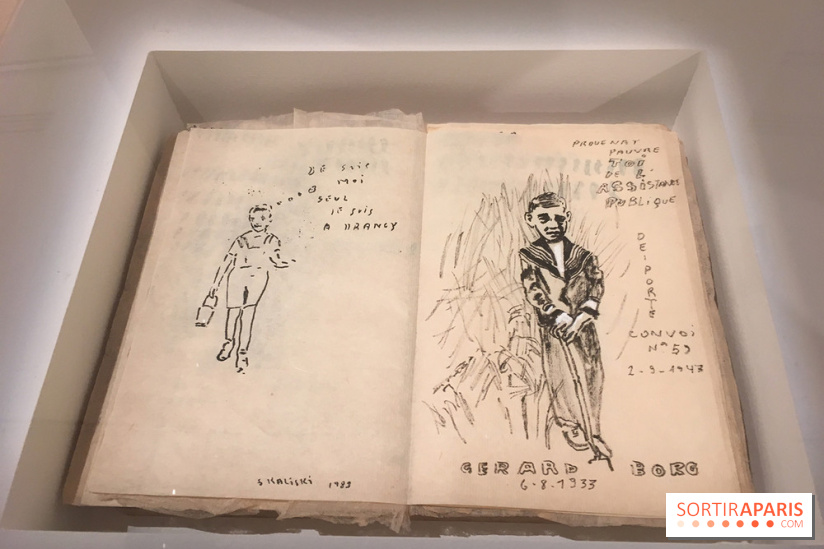 JE SUIS
MOI
SEUL
JE SUIS
A DRANCY
S KALISKI
PAUVRE
TOI
DE L'
ASSISTANCE
PUBLIQUE
DEPORTE
CONVOI
N° 59
2-9-1943
GERARD BORG
6.8.1933
SORTIRAPARIS
.COM